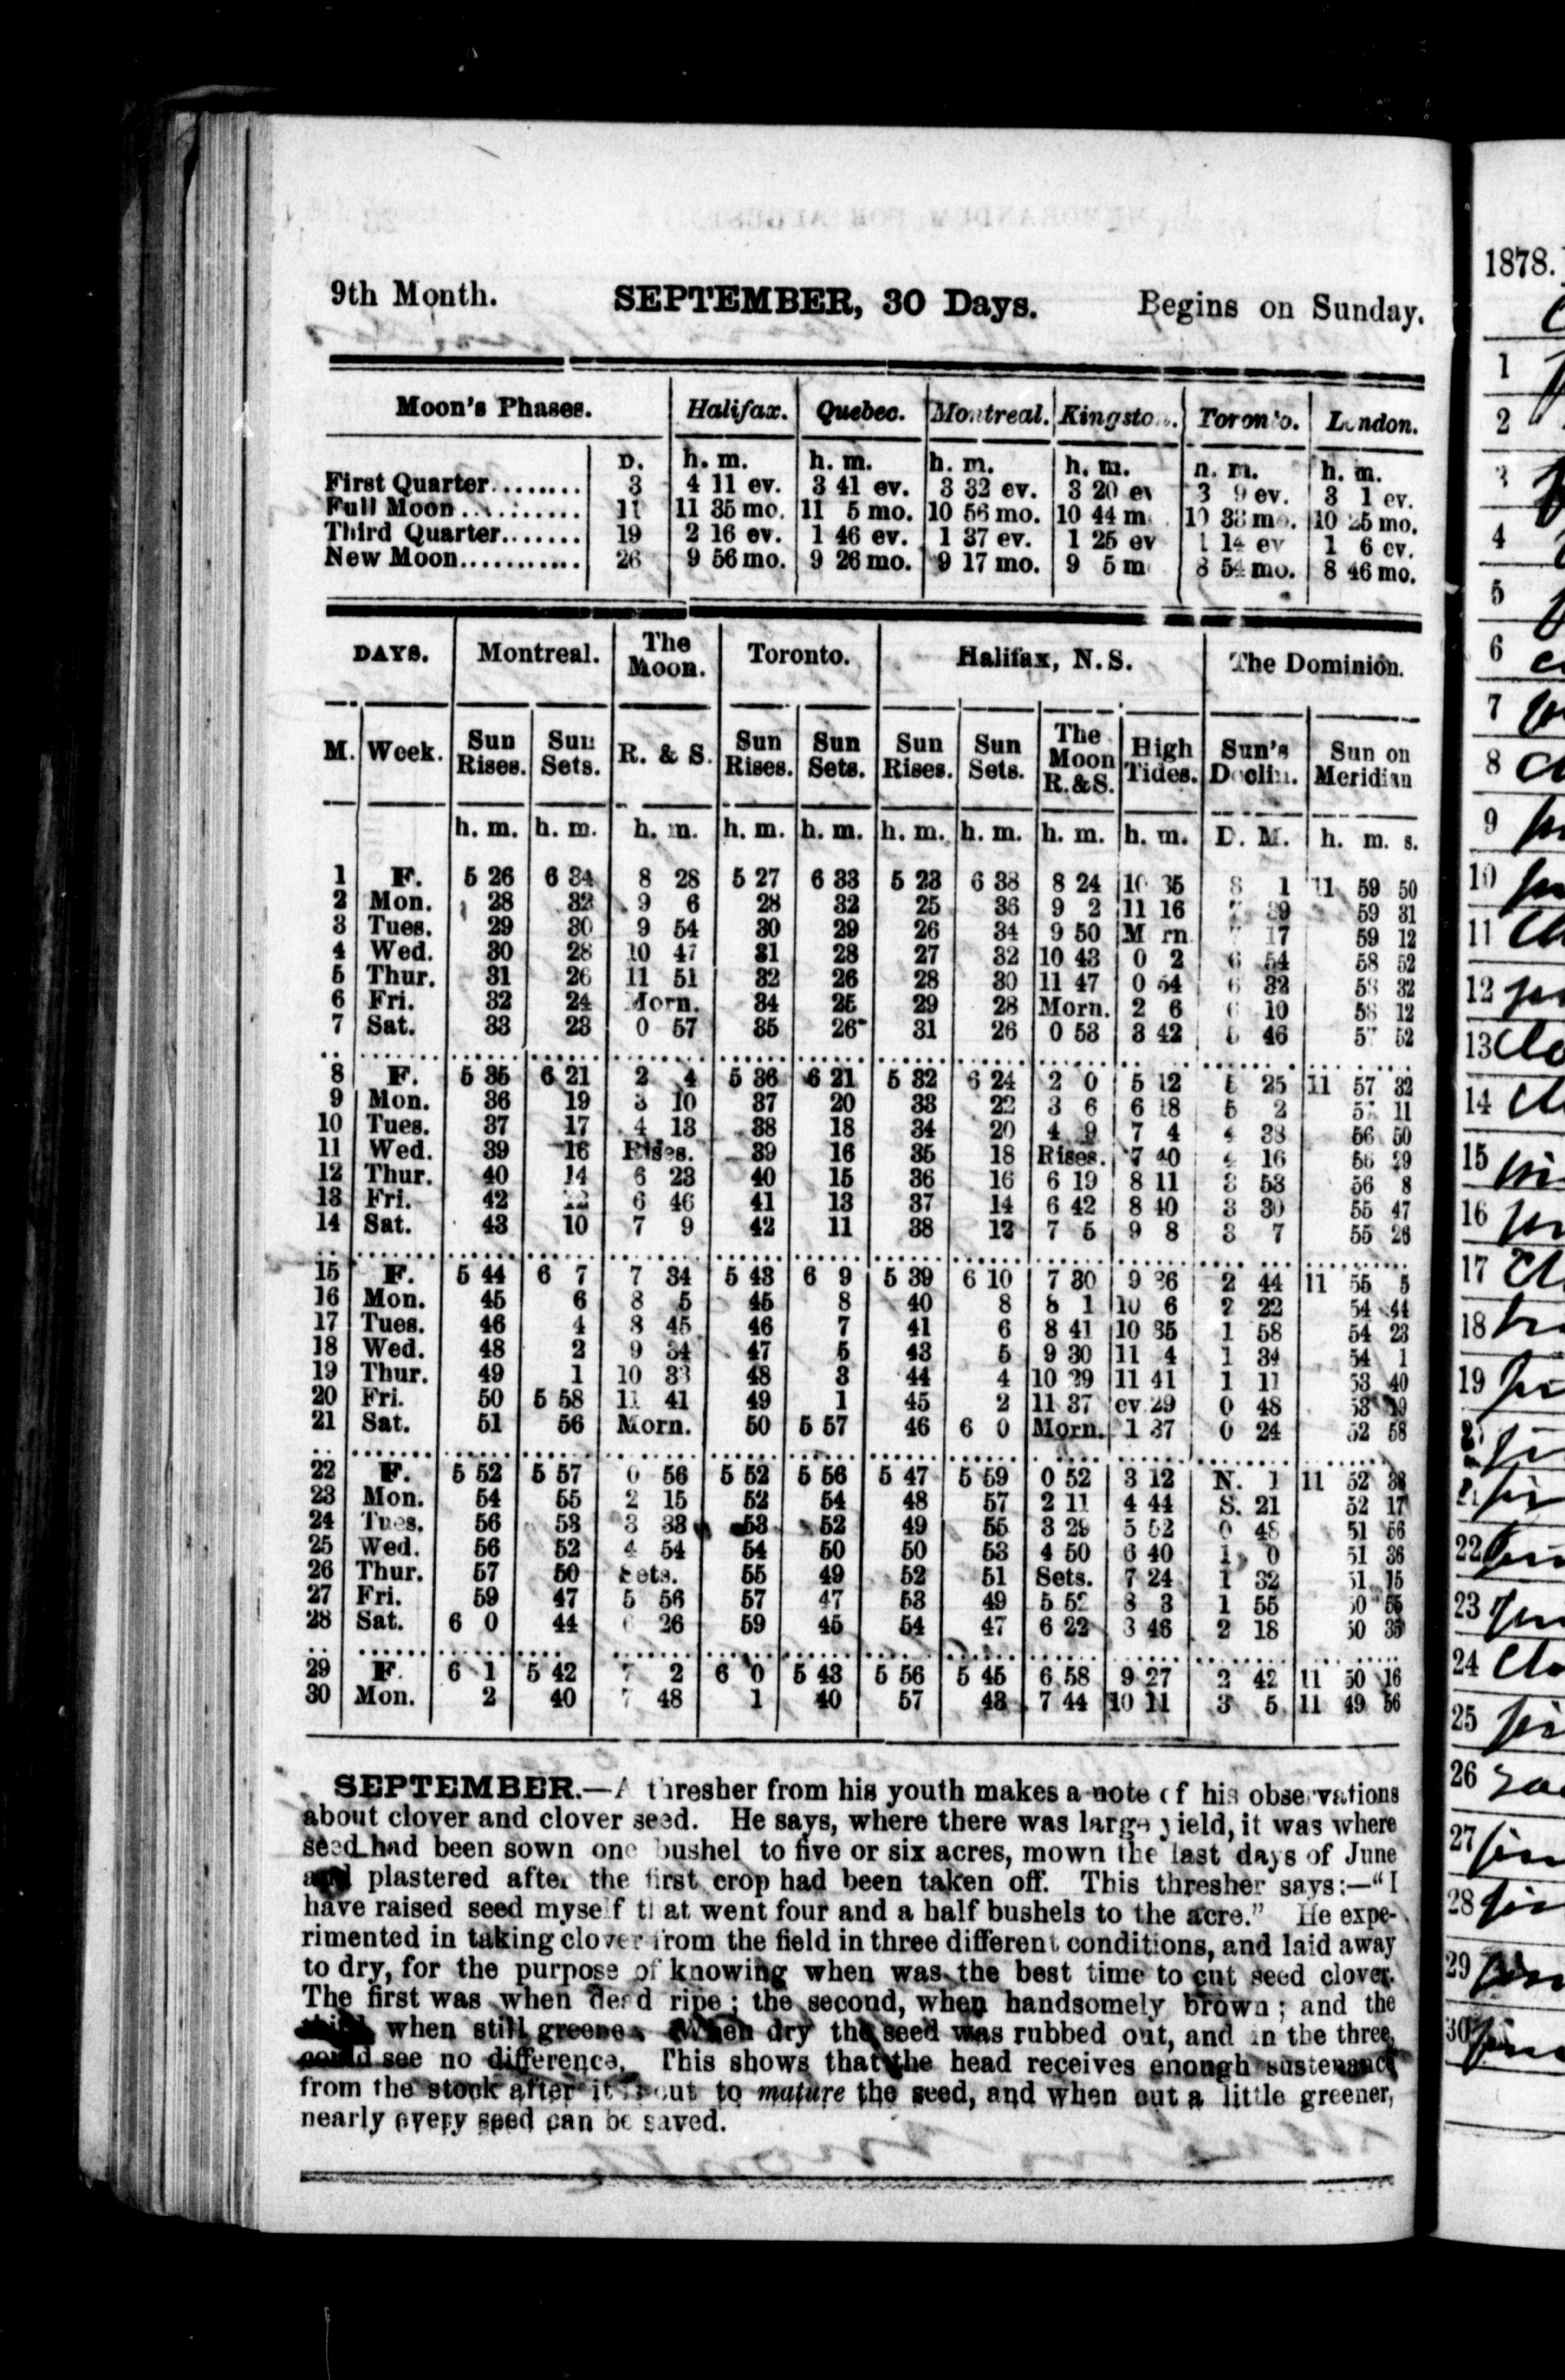 9th Month. SEPTEMBER, 30 Days. Begins on Sunday.
Moon's Phases. Halifax. Quebec. Montreal. Kingsto. Toronto. London.
D. h. m. h. m. h. m. h. m. h. m. h. m.
First Quarter......... 3 4 11 ev. 3 41 ev. 3 32 ev. 3 20 ev 3 9 ev. 3 1 ev.
Full Moon........... 11 11 35 mo. 11 5 mo. 10 56 mo. 10 44 m. 10 33 mo. 10 25 mo.
Third Quarter....... 19 2 16 ev. 1 46 ev. 1 37 ev. 1 25 ev 1 14 ev 1 6 ev.
New Moon........... 26 9 56 mo. 9 26 mo. 9 17 mo. 9 5 m 8 54 mo. 8 46 mo.
DAYS. Montreal. The Moon. Toronto. Halifax, N.S. The Dominion.
M. Week. Sun Rises. Sun Sets. R. & S. Sun Rises. Sun Sets. Sun Rises. Sun Sets. The Moon R.&S. High Tides. Sun's Declin. Sun on Meridian
h. m. h. m. h. m. h. m. h. m. h. m. h. m. h. m. h. m. D. M. h. m. s.
1 F. 5 26 6 34 8 28 5 27 6 33 5 23 6 38 8 24 10 35 8 1 11 59 50
2 Mon. 28 32 9 6 28 32 25 36 9 2 11 16 7 39 59 31
3 Tues. 29 30 9 54 30 29 26 34 9 50 M rn 7 17 59 12
4 Wed. 30 28 10 47 31 28 27 32 10 43 0 2 6 54 58 52
5 Thur. 31 26 11 51 32 26 28 30 11 47 0 54 6 32 58 32
6 Fri. 32 24 Morn. 34 25 29 28 Morn. 2 6 6 10 58 12
7 Sat. 33 23 0 57 35 26 31 26 0 53 3 42 5 46 57 52
8 F. 5 35 6 21 2 4 5 36 6 21 5 32 6 24 2 0 5 12 5 25 11 57 32
9 Mon. 36 19 3 10 37 20 33 22 3 6 6 18 5 2 57 11
10 Tues. 37 17 4 13 38 18 34 20 4 9 7 4 4 38 56 50
11 Wed. 39 16 Rises. 39 16 35 18 Rises. 7 40 4 16 56 29
12 Thur. 40 14 6 23 40 15 36 16 6 19 8 11 3 53 56 8
13 Fri. 42 12 6 46 41 13 37 14 6 42 8 40 3 30 55 47
14 Sat. 43 10 7 9 42 11 38 12 7 5 9 8 3 7 55 26
15 F. 5 44 6 7 7 34 5 43 6 9 5 39 6 10 7 30 9 36 2 44 11 55 5
16 Mon. 45 6 8 5 45 8 40 8 8 1 10 6 2 22 54 44
17 Tues. 46 4 8 45 46 7 41 6 8 41 10 35 1 58 54 23
18 Wed. 48 2 9 34 47 5 43 5 9 30 11 4 1 34 54 1
19 Thur. 49 1 10 33 48 3 44 4 10 29 11 41 1 11 53 40
20 Fri. 50 5 58 11 41 49 1 45 2 11 37 ev. 29 0 48 53 19
21 Sat. 51 56 Morn. 50 5 57 46 6 0 Morn. 1 37 0 24 52 58
22 F. 5 52 5 57 0 56 5 52 5 56 5 47 5 59 0 52 3 12 N. 1 11 52 38
23 Mon. 54 55 2 15 52 54 48 57 2 11 4 44 S. 21 52 17
24 Tues. 56 53 3 33 53 52 49 55 3 29 5 52 0 48 51 56
25 Wed. 56 52 4 54 54 50 50 53 4 50 6 40 1 0 51 36
26 Thur. 57 50 Sets. 55 49 52 51 Sets. 7 24 1 32 51 15
27 Fri. 59 47 5 56 57 47 53 49 5 52 8 3 1 55 50 55
28 Sat. 6 0 44 6 26 59 45 54 47 6 22 8 46 2 18 50 35
29 F. 6 1 5 42 7 2 6 0 5 43 5 56 5 45 6 58 9 27 2 42 11 50 16
30 Mon. 2 40 7 48 1 40 57 43 7 44 10 11 3 5 11 49 56
SEPTEMBER.—A thresher from his youth makes a note of his observations
about clover and clover seed. He says, where there was large yield, it was where
seed had been sown one bushel to five or six acres, mown the last days of June
and plastered after the first crop had been taken off. This thresher says:—“I
have raised seed myself that went four and a half bushels to the acre.” He expe-
rimented in taking clover from the field in three different conditions, and laid away
to dry, for the purpose of knowing when was the best time to cut seed clover.
The first was when dead ripe; the second, when handsomely brown; and the
third when still greener. When dry the seed was rubbed out, and in the three
could see no difference. This shows that the head receives enough sustenance
from the stock after it is cut to mature the seed, and when cut a little greener,
nearly every seed can be saved.
1878.
1
2
3
4
5
6
7
8
9
10
11
12
13
14
15
16
17
18
19
22
23
24
25
26
27
28
29
30